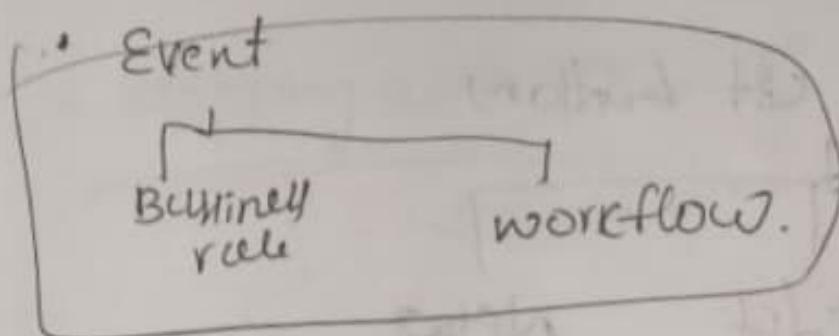 Event
Bussiness
rule
workflow.